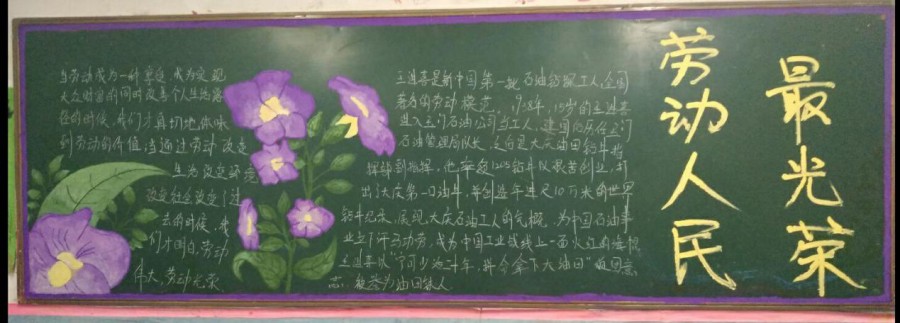 当劳动成为一种享受，成为实现
大众财富的同时改善个人生活途
径的时候，我们才真切地体味
到劳动的价值；当通过劳动改造
生为改变环境
改变社会改变
去的时候，我
们才明白，劳动
伟大，劳动光荣
王进喜是新中国第一批石油钻探工人，全国
著名的劳动模范。1938年，15岁的王进喜
进入玉门石油公司当工人，建国后历任玉门
石油管理局队长、大庆油田钻井指
挥部副指挥。他率领1205钻井队艰苦创业，打
出大庆第一口油井，并创造年进尺10万米的世界
钻井纪录，展现大庆石油工人的气概，为中国石油事
业立下汗马功劳，成为中国工业战线上一面火红的旗帜
王进喜以“宁可少活二十年，拼命拿下大油田”
劳动人民
最光荣